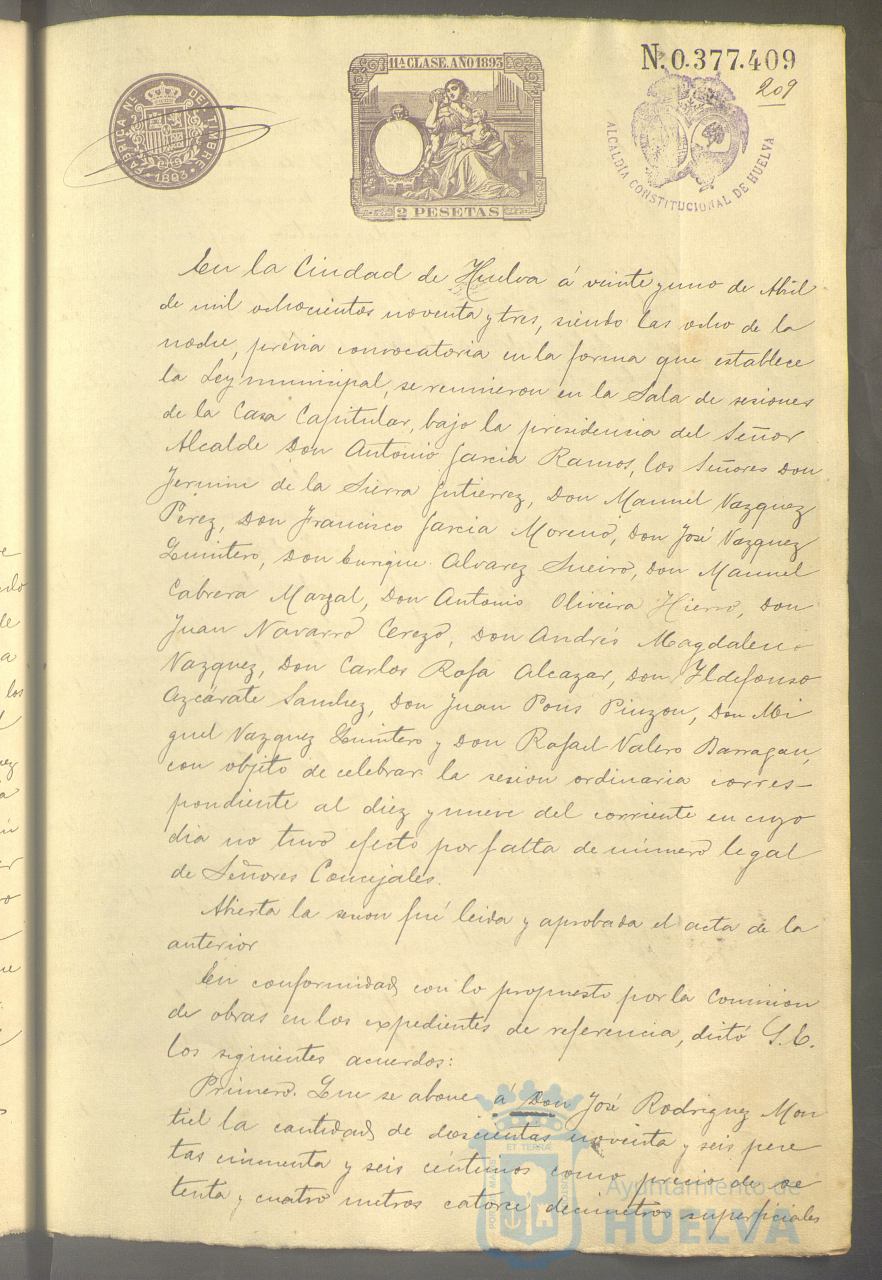 FÁBRICA Nal DEL TIMBRE
1893
11ª CLASE. AÑO 1893
2 PESETAS
N. 0.377.409
209
ALCALDÍA CONSTITUCIONAL DE HUELVA
En la Ciudad de Huelva á veinte y uno de Abril
de mil ochocientos noventa y tres, siendo las ocho de la
noche, prévia convocatoria en la forma que establece
la Ley municipal, se reunieron en la Sala de sesiones
de la Casa Capitular, bajo la presidencia del Señor
Alcalde Don Antonio Garcia Ramos, los Señores Don
Fermin de la Sierra Gutierrez, Don Manuel Vazquez
Perez, Don Francisco Garcia Moreno, Don José Vazquez
Quintero, Don Enrique Alvarez Sueiro, Don Manuel
Cabrera Marzal, Don Antonio Oliveira Hierro, Don
Juan Navarro Cerezo, Don Andrés Magdaleno
Vazquez, Don Carlos Rofa Alcazar, Don Ildefonso
Azcárate Sanchez, Don Juan Pons Pinzon, Don Mi
guel Vazquez Quintero y Don Rafael Valero Barragan,
con objeto de celebrar la sesion ordinaria corres-
pondiente al diez y nueve del corriente en cuyo
dia no tuvo efecto por falta de número legal
de Señores Concejales.
Abierta la sesion fué leida y aprobada el acta de la
anterior
En conformidad con lo propuesto por la Comision
de obras en los expedientes de referencia, dictó S.E.
los siguientes acuerdos:
Primero. Que se abone á Don José Rodriguez Mon
tiel la cantidad de doscientas noventa y seis pese
tas cincuenta y seis céntimos como precio de se
tenta y cuatro metros catorce decimetros superficiales
Ayuntamiento de
HUELVA